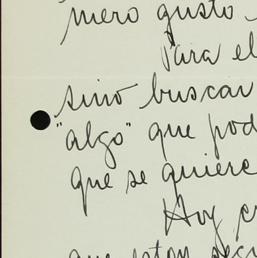 mero gusto
Para el
sino buscar
"algo" que pod
que se quiere
Hoy
que estoy